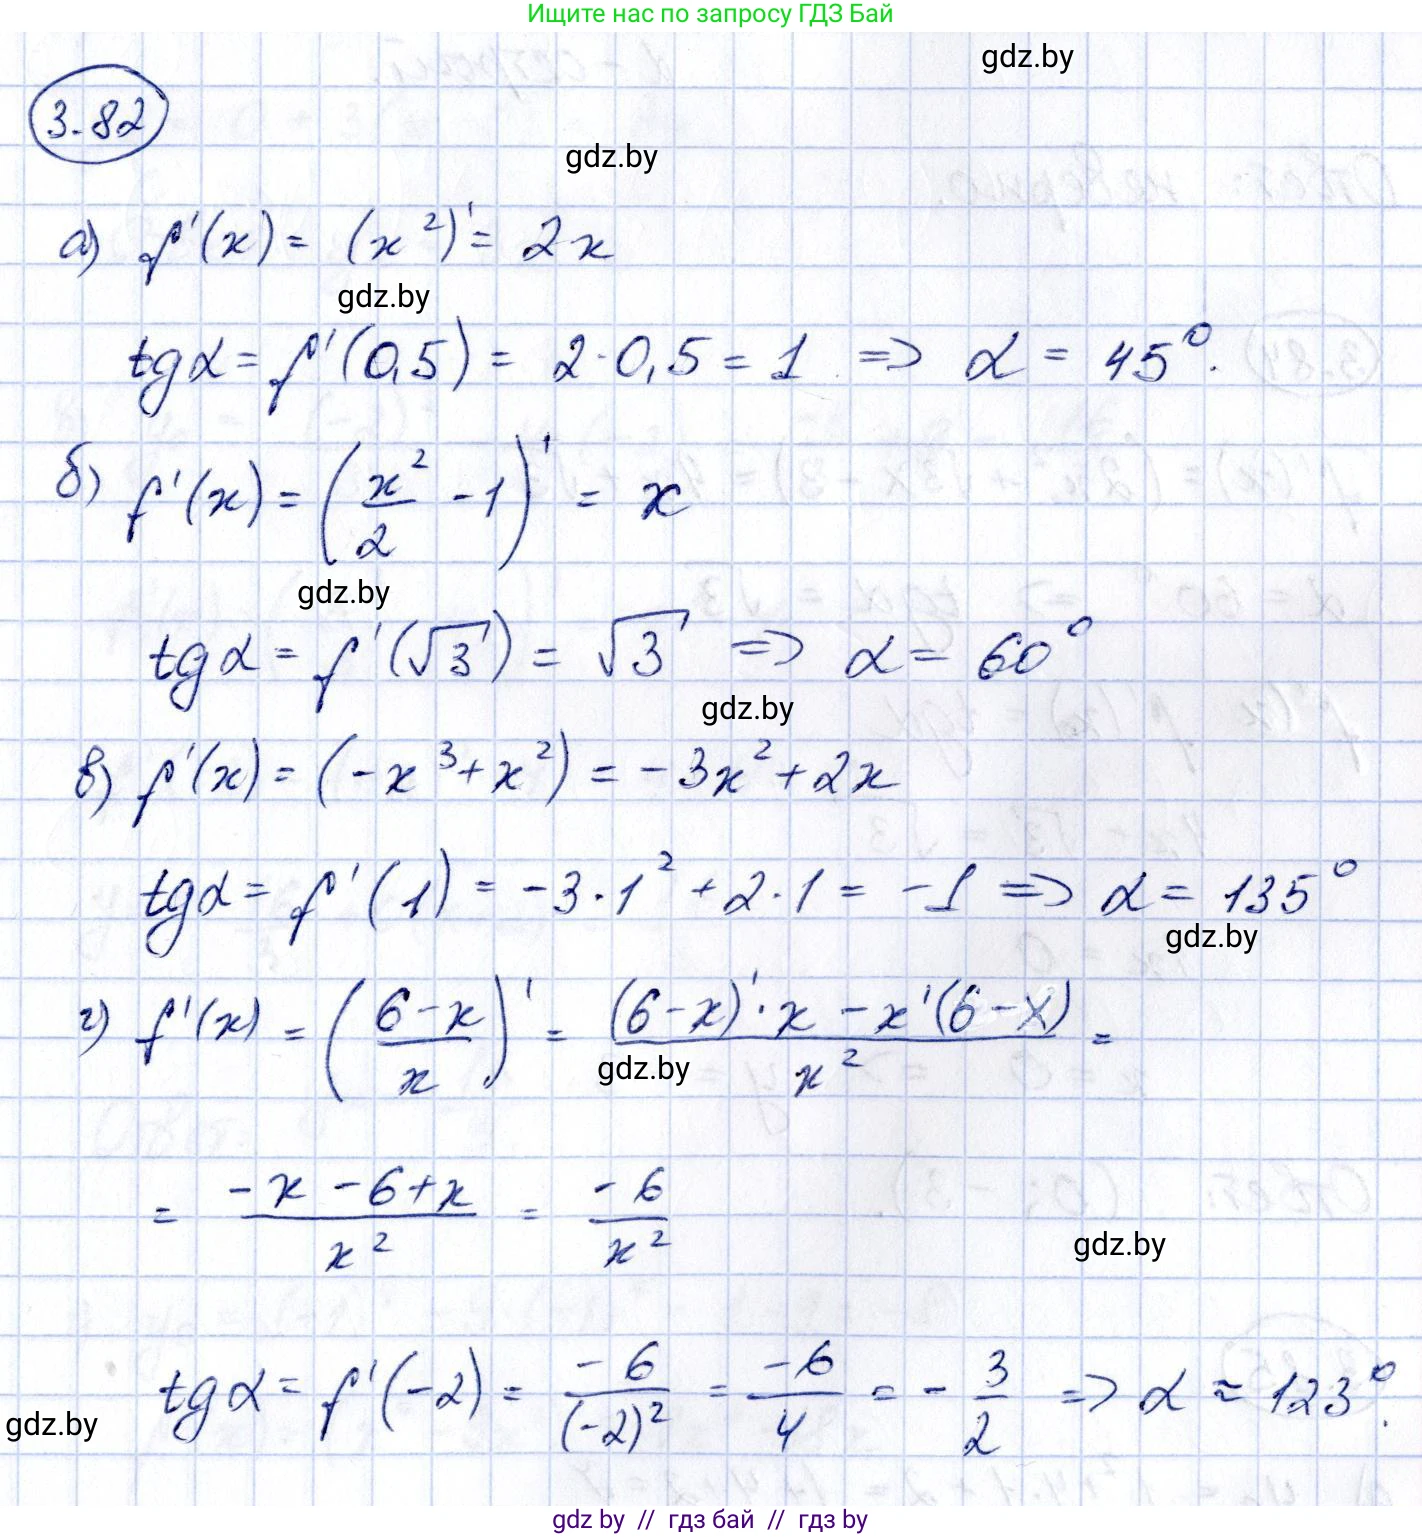 Ищите нас по запросу ГДЗ Бай
gdz.by
3.82
gdz.by
а) f'(x) = (x²)' = 2x
gdz.by
tgα = f'(0,5) = 2·0,5 = 1 => α = 45°.
б) f'(x) = (x²/2 - 1)' = x
gdz.by
tgα = f'(√3) = √3 => α = 60°
gdz.by
в) f'(x) = (-x³+x²) = -3x²+2x
tgα = f'(1) = -3·1² + 2·1 = -1 => α = 135°
gdz.by
г) f'(x) = ((6-x)/x)' = ((6-x)'·x - x'(6-x))/x² =
gdz.by
= (-x-6+x)/x² = -6/x²
gdz.by
tgα = f'(-2) = -6/(-2)² = -6/4 = -3/2 => α ≈ 123°.
gdz.by
gdz.by // гдз бай // гдз by